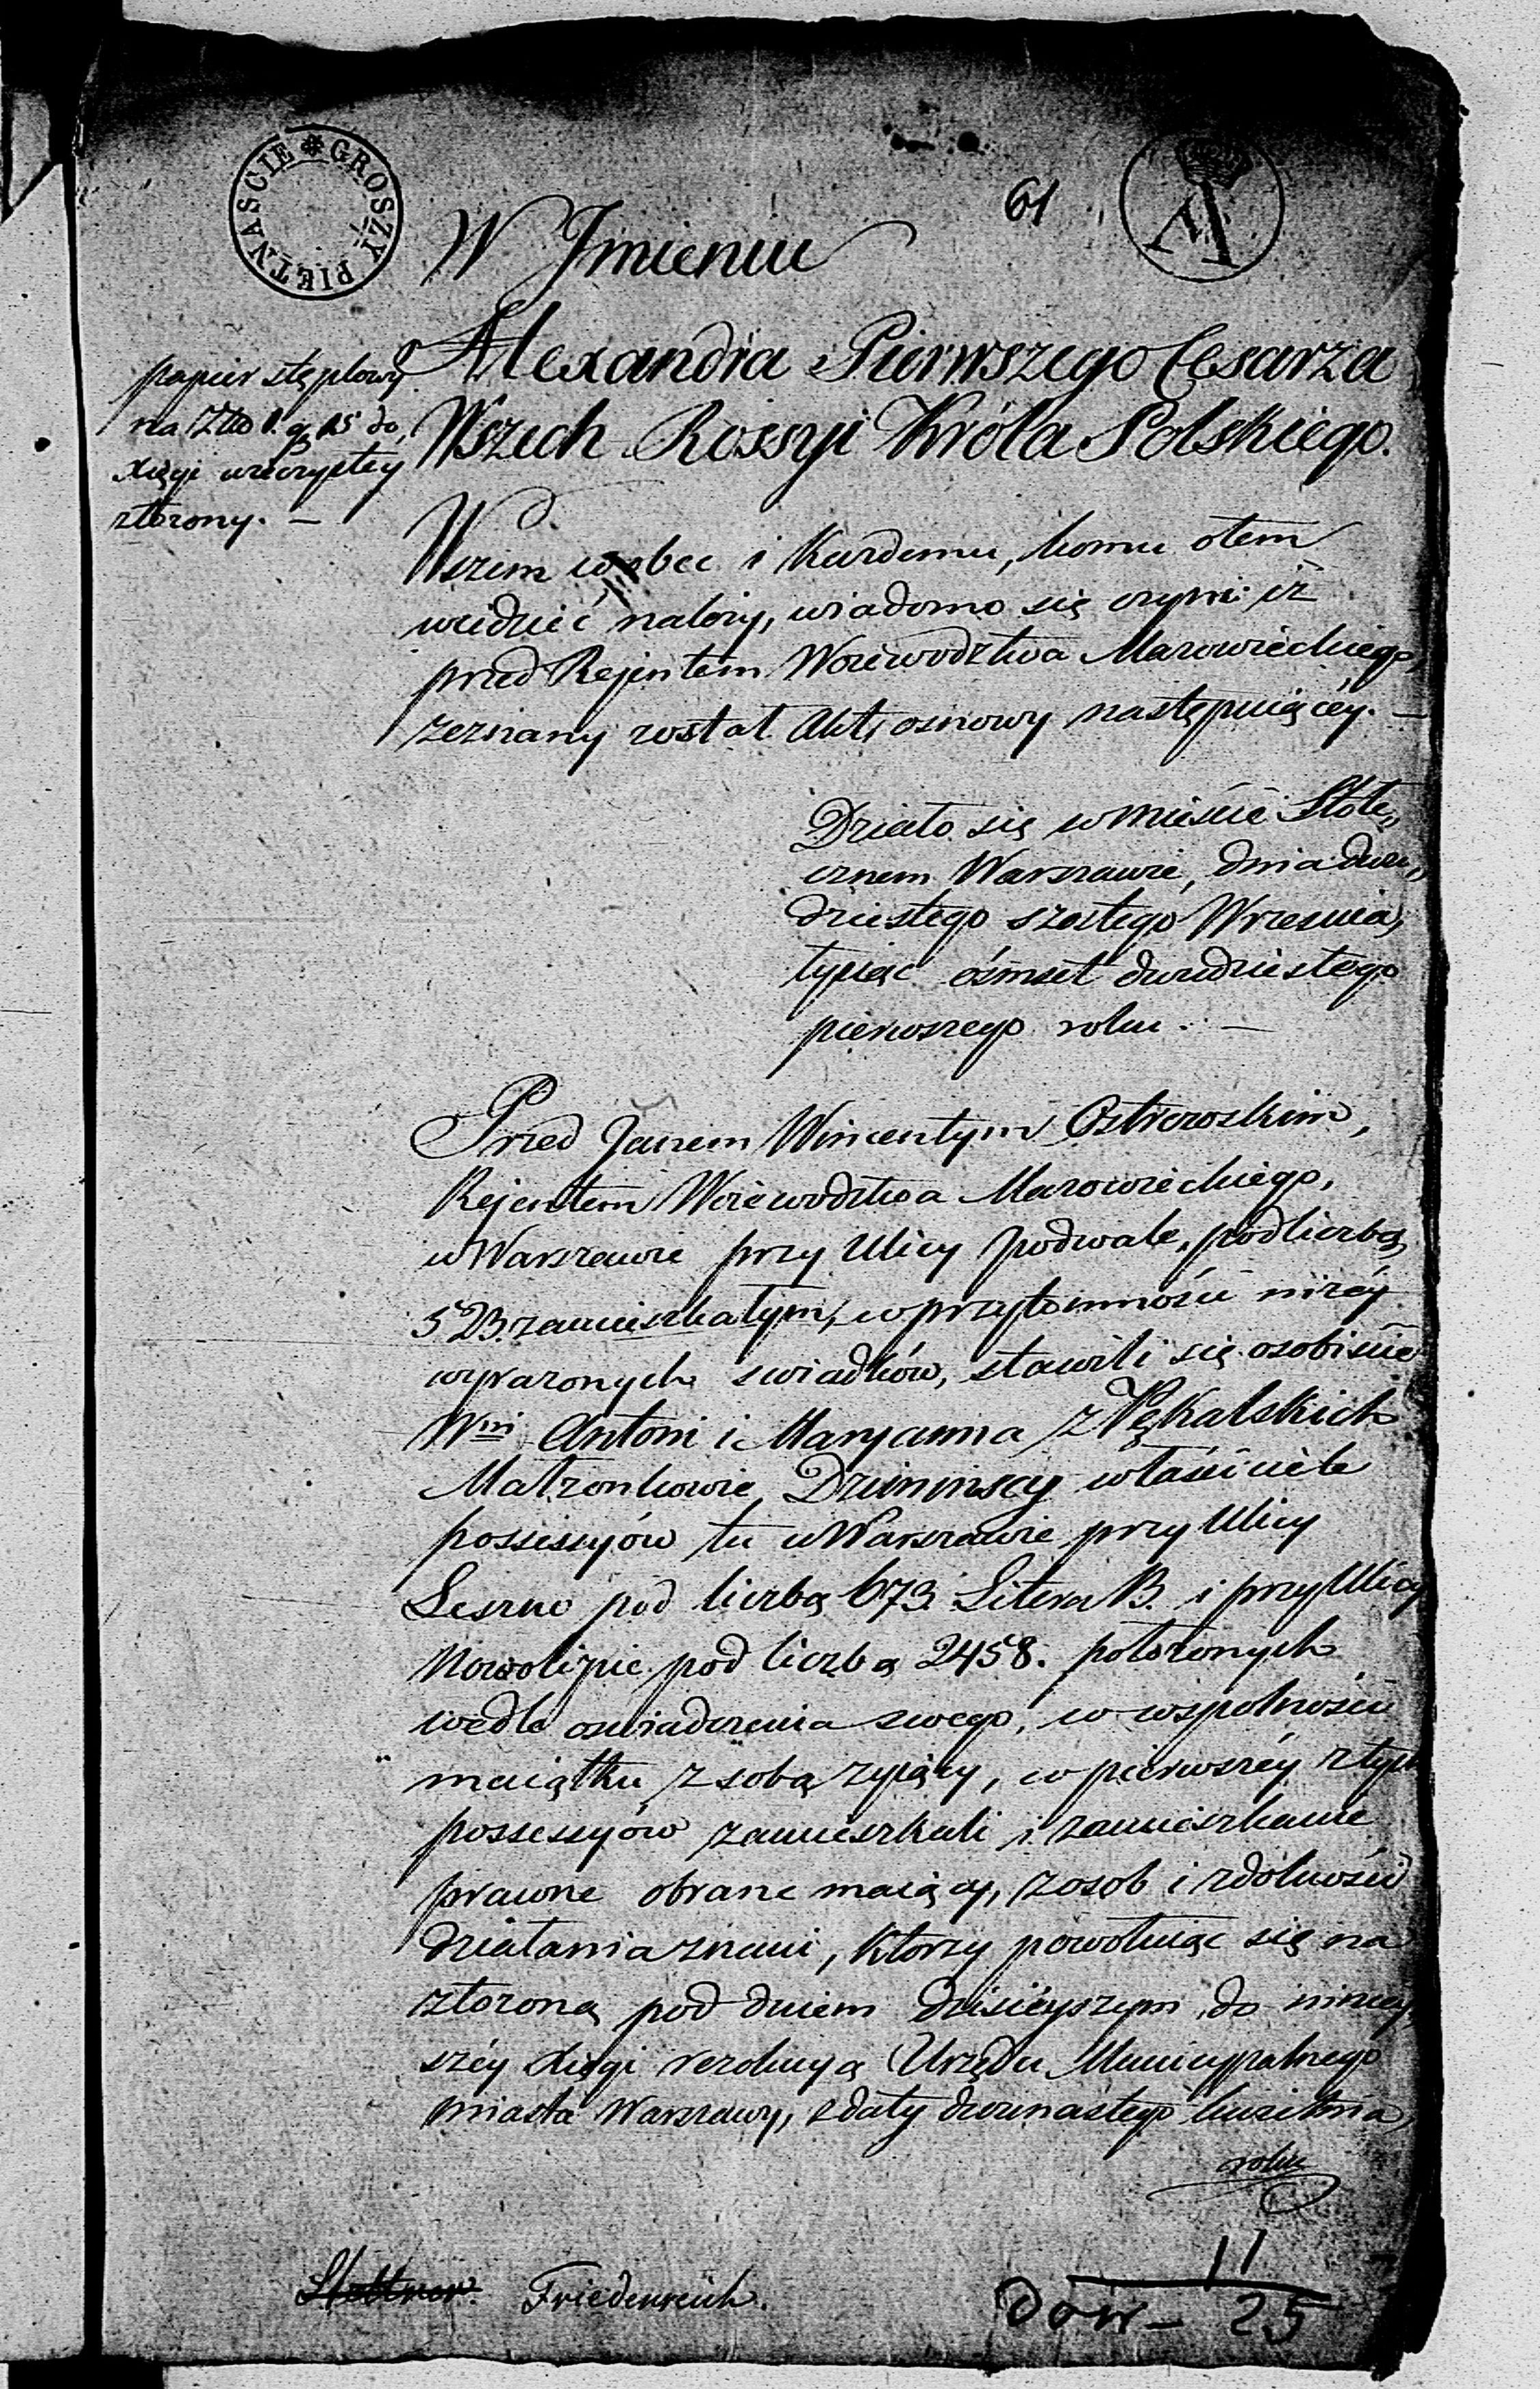 GROSZY PIĘTNAŚCIE
61
W Jmieniu
Alexandra Pierwszego Cesarza
Wszech Rossyi Króla Polskiego.
papier stęplowy
na Złto 1. g 15 do
xięgi wieczystey
złożony. —
Wszem wobec i każdemu, komu otem
wiedzieć należy, wiadomo się czyni iż
przed Rejentem Woiewodztwa Mazowieckiego,
zeznany został Akt, osnowy następuiącéy. —
Działo się w mieście Stołe„
cznem Warszawie, dnia dwu„
dziestego szostego Wrzesnia,
tysiąc ośmset dwudziestego
pierwszego roku. —
Przed Janem Wincentym Ostrzoskim,
Rejentem Woiewodztwa Mazowieckiego,
w Warszawie przy Ulicy podwale, pod liczbą
523. zamieszkałym, w przytomności niżéy
wyrazonych swiadków, stawili się osobiście
Wni Antoni i Maryanna z Pękalskich
Małżonkowie Dzimińscy właściciele
possessyów tu w Warszawie przy Ulicy
Leszno pod liczbą 673. Litera B. i przy Ulicy
Nowolipie pod liczbą 2458. położonych
wedle oswiadczenia swego, w wspolności
maiątku z sobą żyiący, w pierwszéy z tych
possessyów zamieszkali i zamieszkanie
prawne obrane maiący, z osob i zdolności
działania znani, Którzy powołuiąc się na
złożoną pod dniem dzisieyszym do niniey„
széy xięgi rezolucyą Urzędu Municypalnego
miasta Warszawy, z daty dwunastego kwietnia
roku
Friedenreich.
11
dow – 25